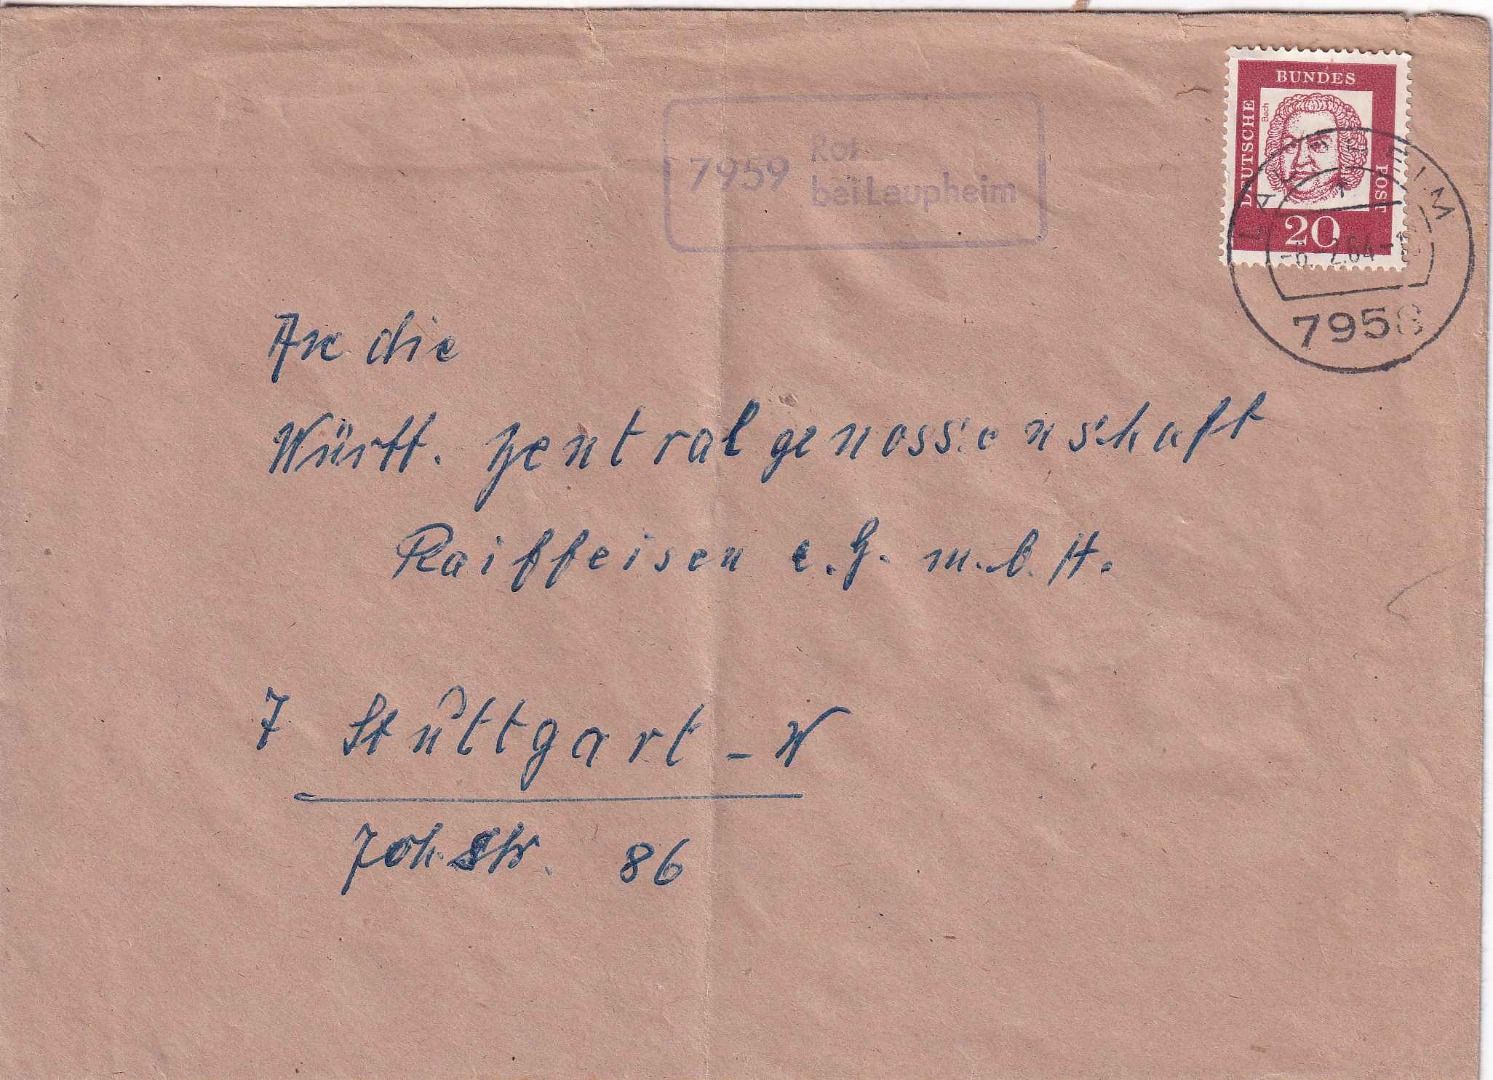 7959 Rot
bei Laupheim
DEUTSCHE BUNDES POST
Bach
20
LAUPHEIM
-6. 2.64-18
7958
An die
Württ. Zentralgenossenschaft
Raiffeisen e. G. m. b. H.
7 Stuttgart - W
Joh. Str. 86